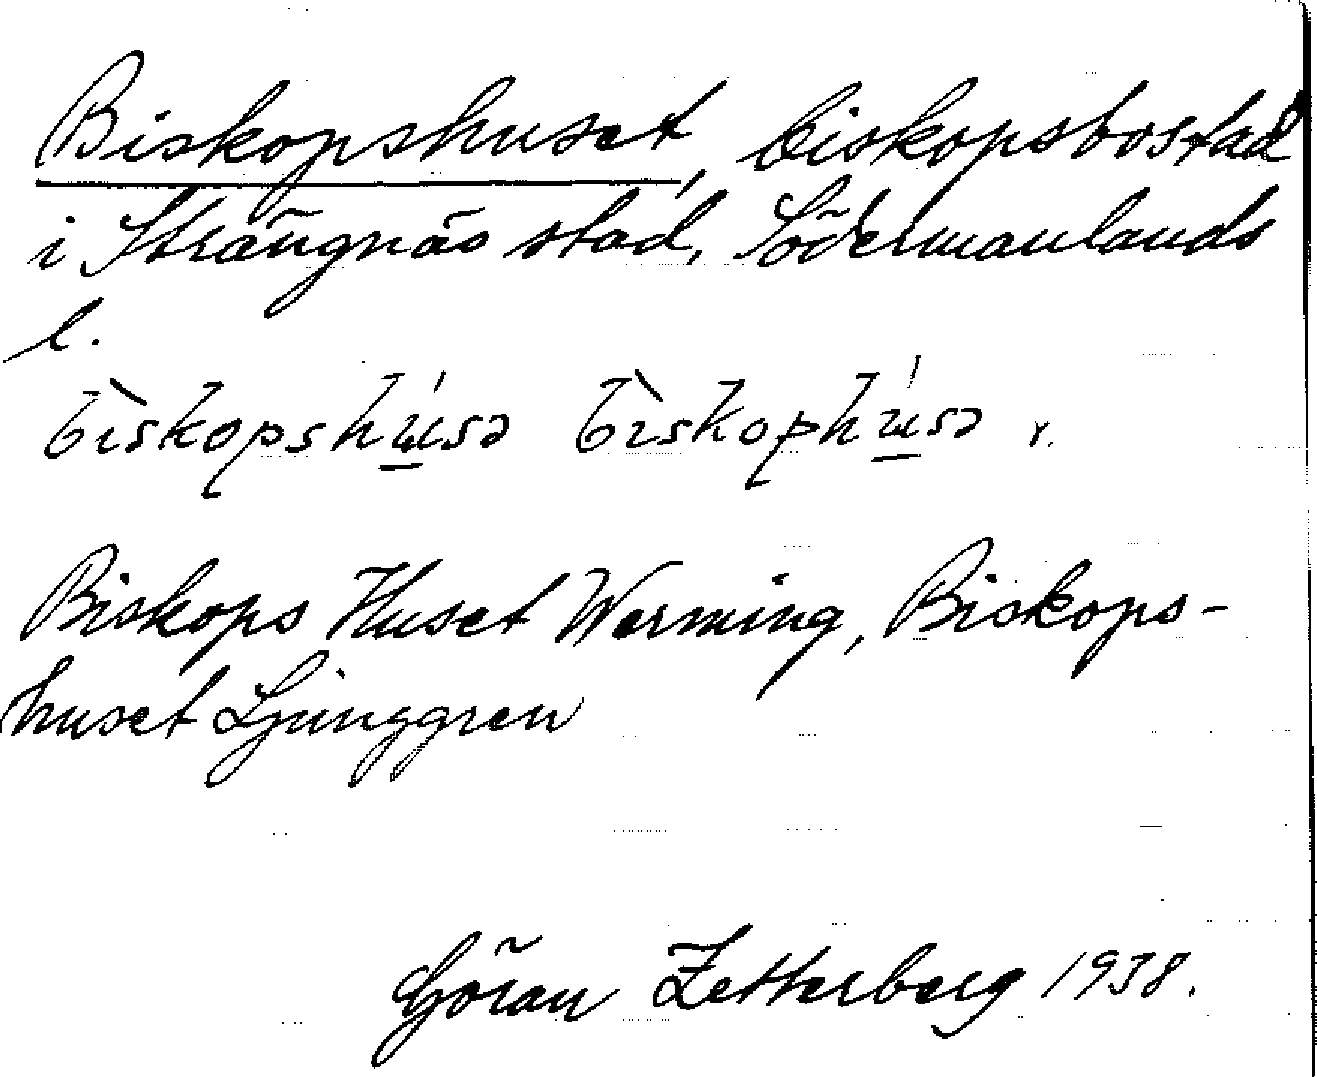 Biskopshuset, biskopsbostad
i Strängnäs stad, Södermanlands
l.
bìskopshú̱sə bìskophú̱sə r.
Biskops Huset Werming, Biskops-
huset Ljunggren
Göran Zetterberg 1938.